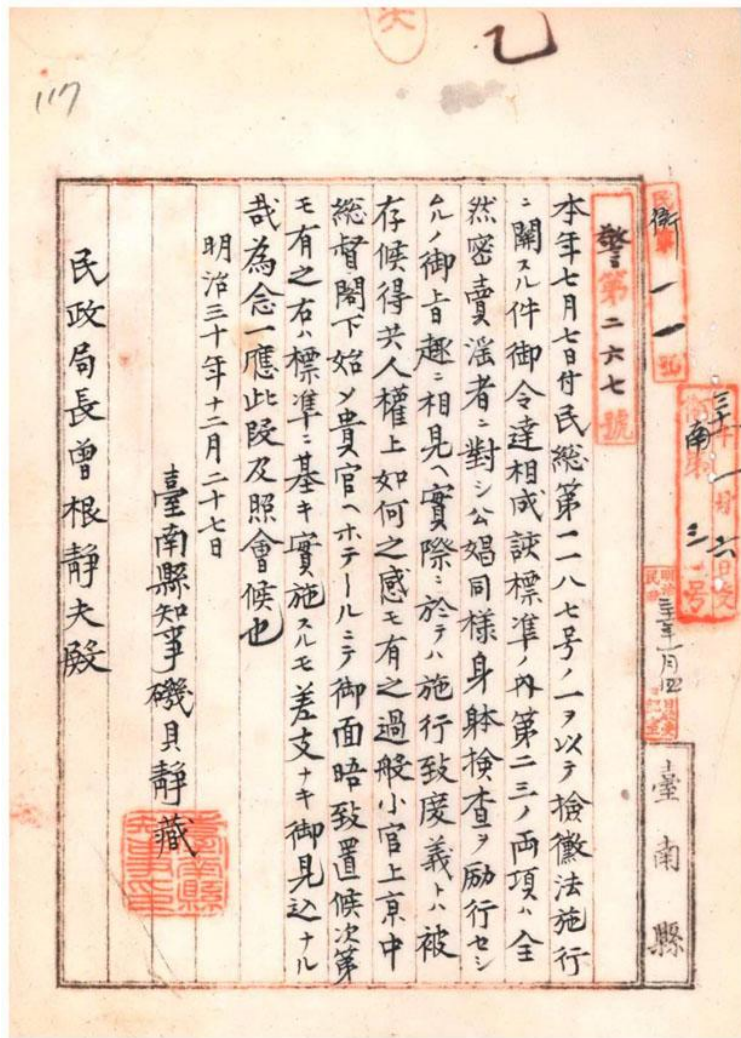 117
乙
警第二六七號
本年七月七日付民総第一一八七号ノ一ヲ以テ検黴法施行
ニ関スル件御令達相成該標準ノ内第二三ノ両項ハ全
然密賣淫者ニ對シ公娼同様身躰検査ヲ励行セシ
ムルノ御旨趣ニ相見ヘ實際ニ於テハ施行致度義トハ被
存候得共人權上如何之感モ有之過般小官上京中
総督閣下始メ貴官ヘホテールニテ御面晤致置候次第
モ有之右ハ標準ニ基キ實施スルモ差支ナキ御見込ナル
哉為念一應此段及照會候也
明治三十年十二月二十七日
臺南縣知事磯貝靜藏
臺南縣知事印
民政局長曾根靜夫殿
臺南縣